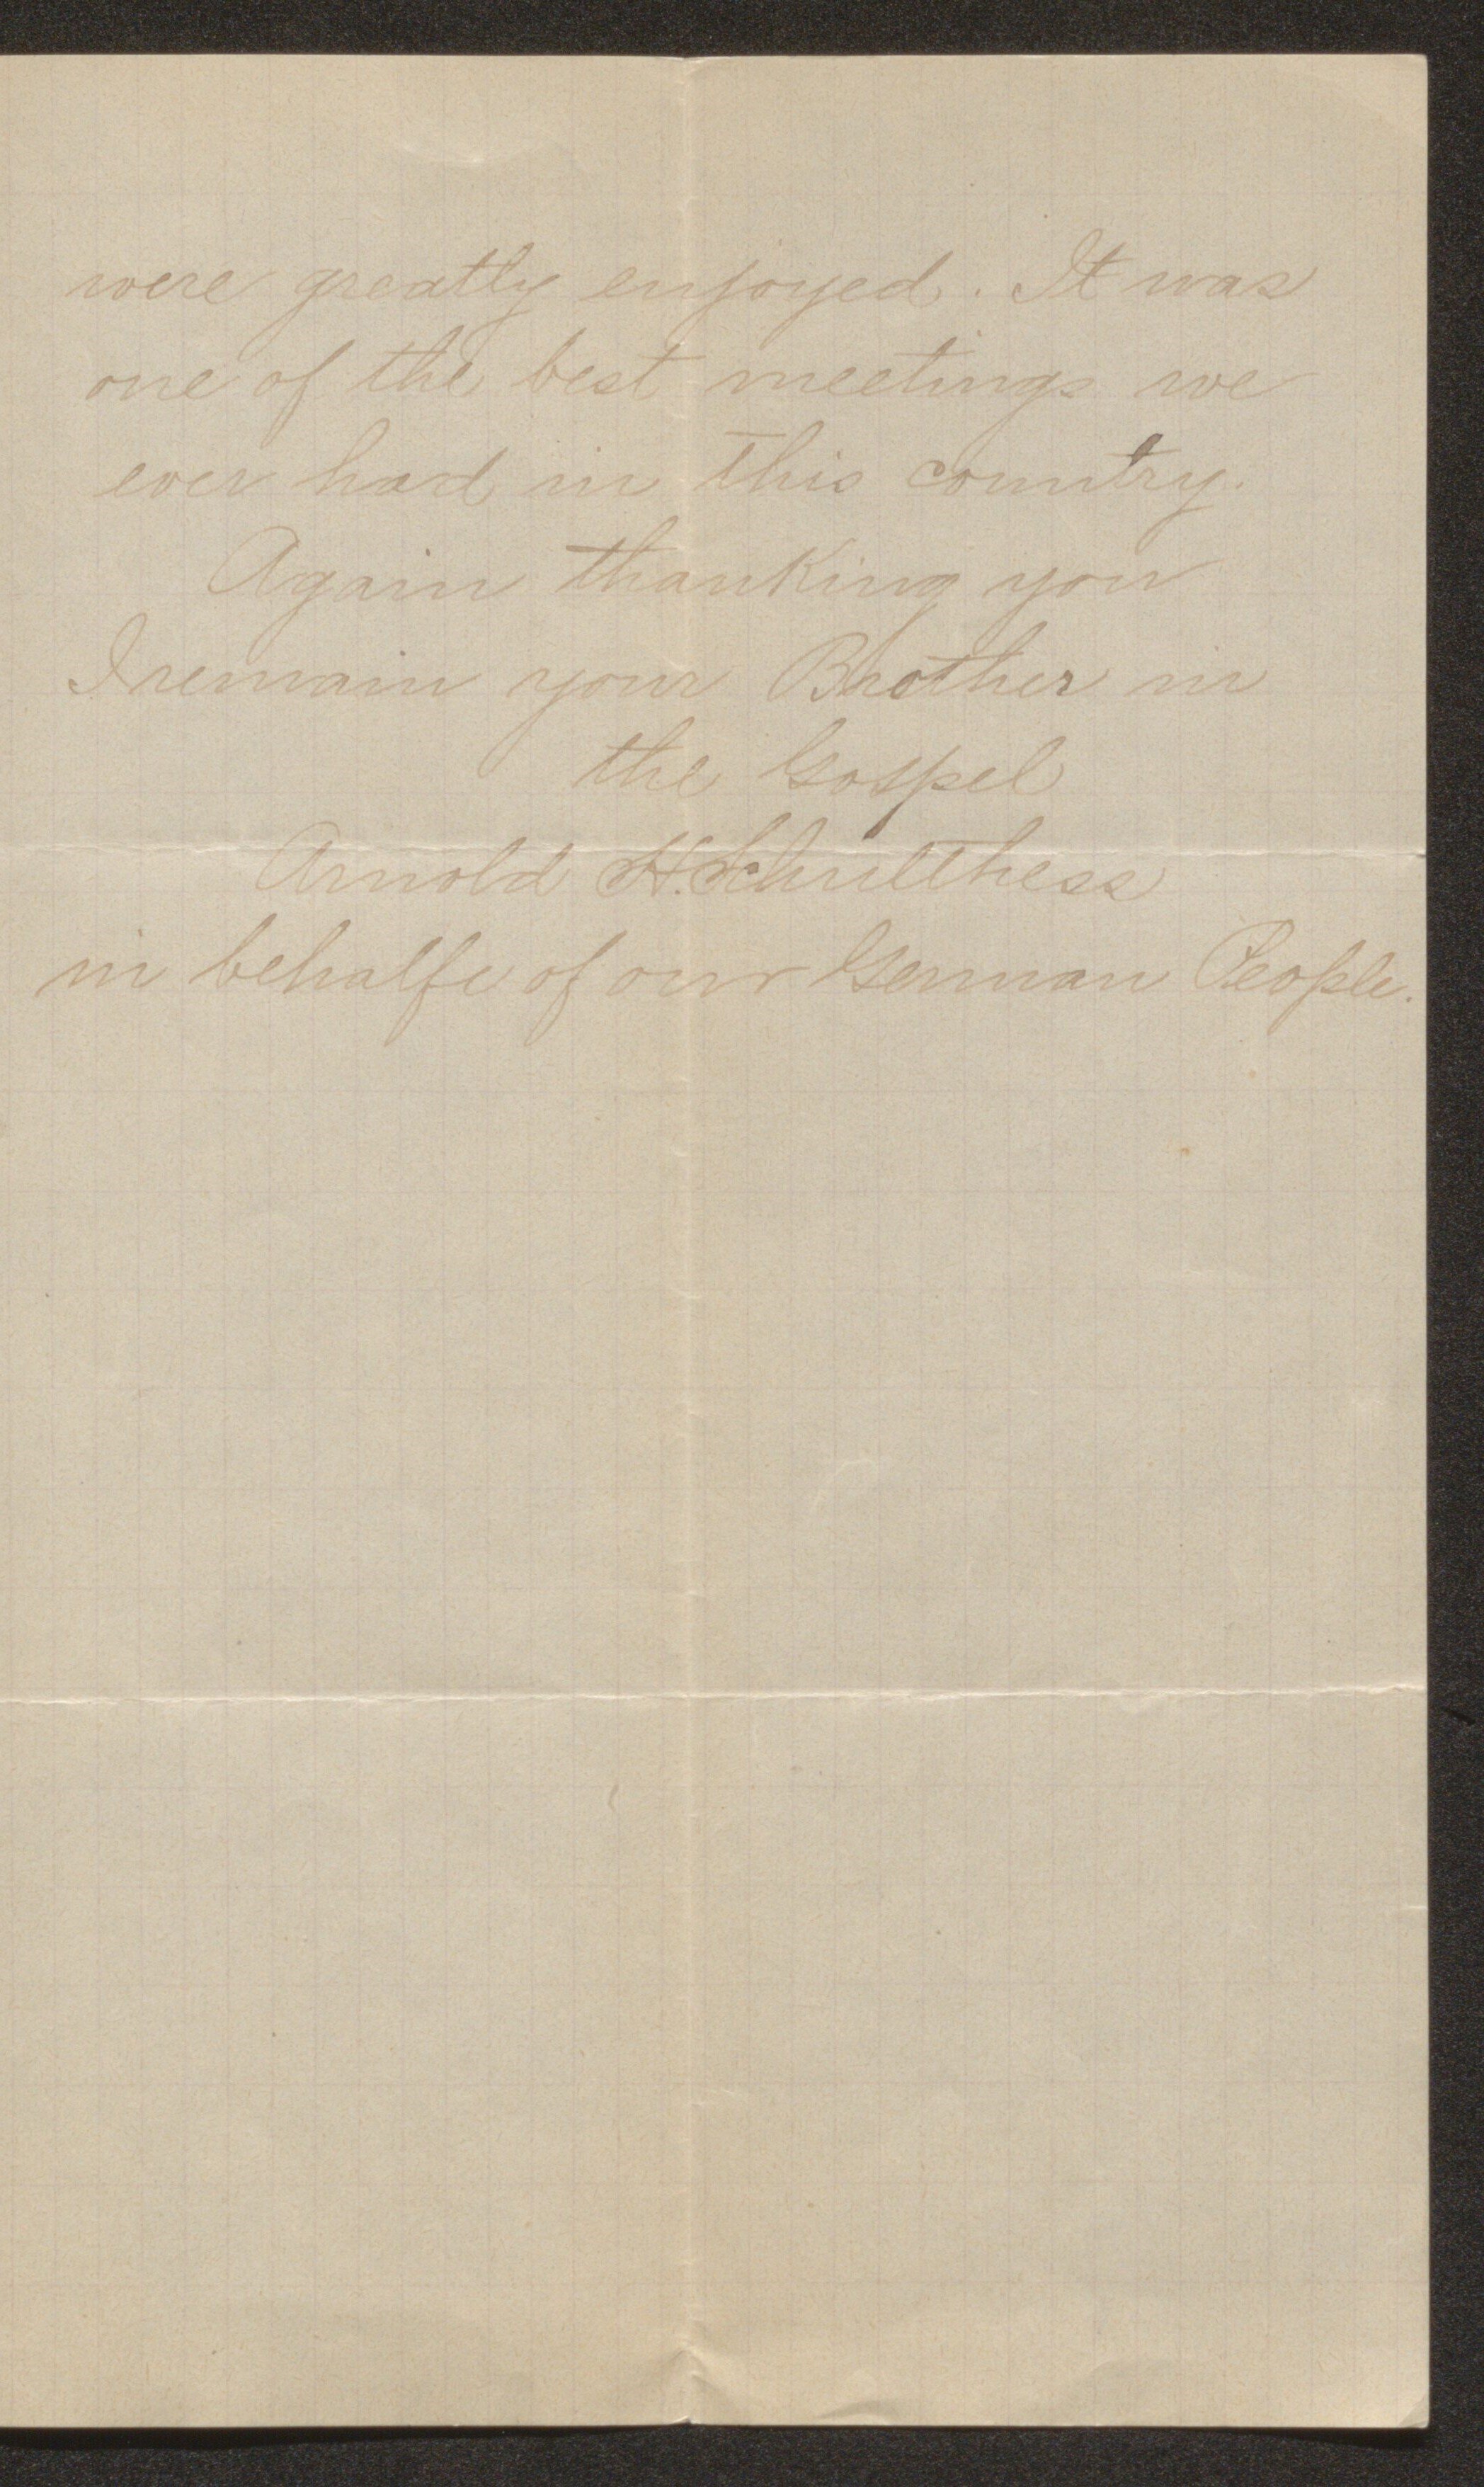 were greatly enjoyed. It was
one of the best meetings we
ever had in this country.
Again thanking you
I remain your Brother in
the Gospel
Arnold H. Schulthess
in behalfe of our German People.